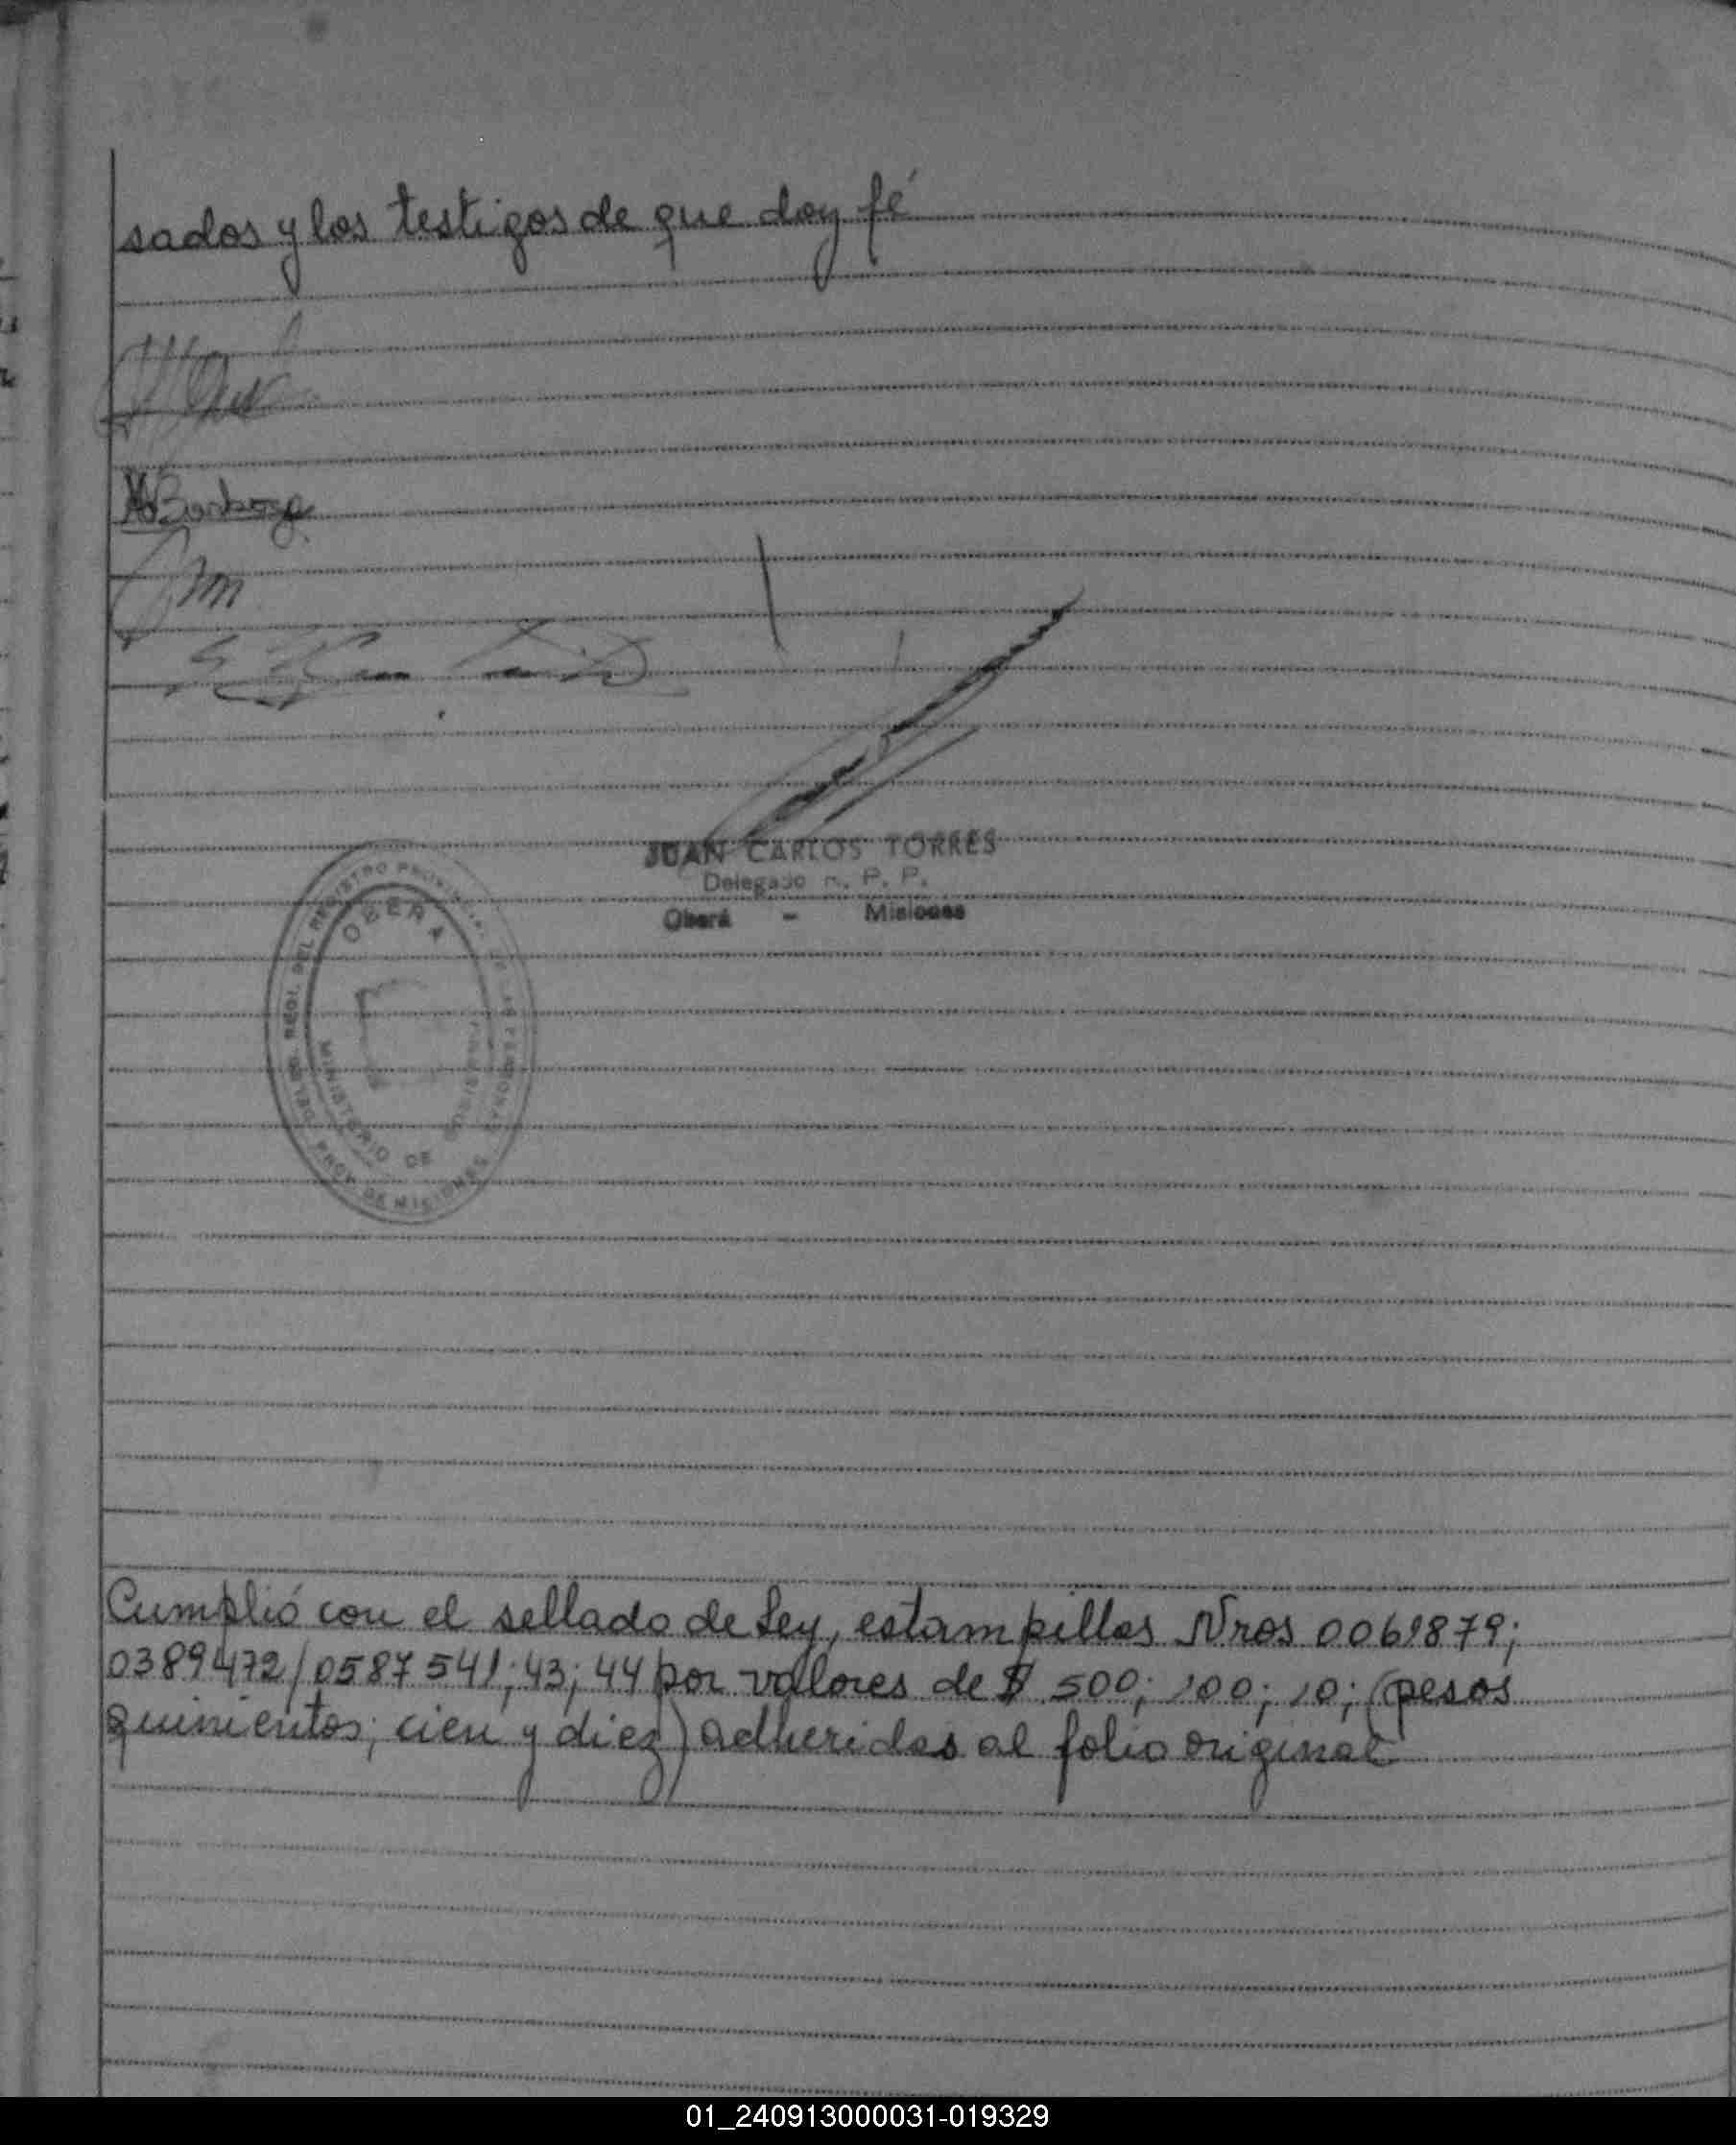 sados y los testigos de que doy fé
Barboza
JUAN CARLOS TORRES
Delegado R. P. P.
Oberá - Misiones
DELEG. REGI. DEL REGISTRO PROVINCIAL DE LAS PERSONAS
OBERA
MINISTERIO DE
PROV. DE MISIONES
Cumplió con el sellado de Ley, estampillas Nros 0061879;
0389472/0587541; 43; 44 por valores de $ 500; 100; 10; (pesos
quinientos; cien y diez) adheridas al folio original
01_240913000031-019329